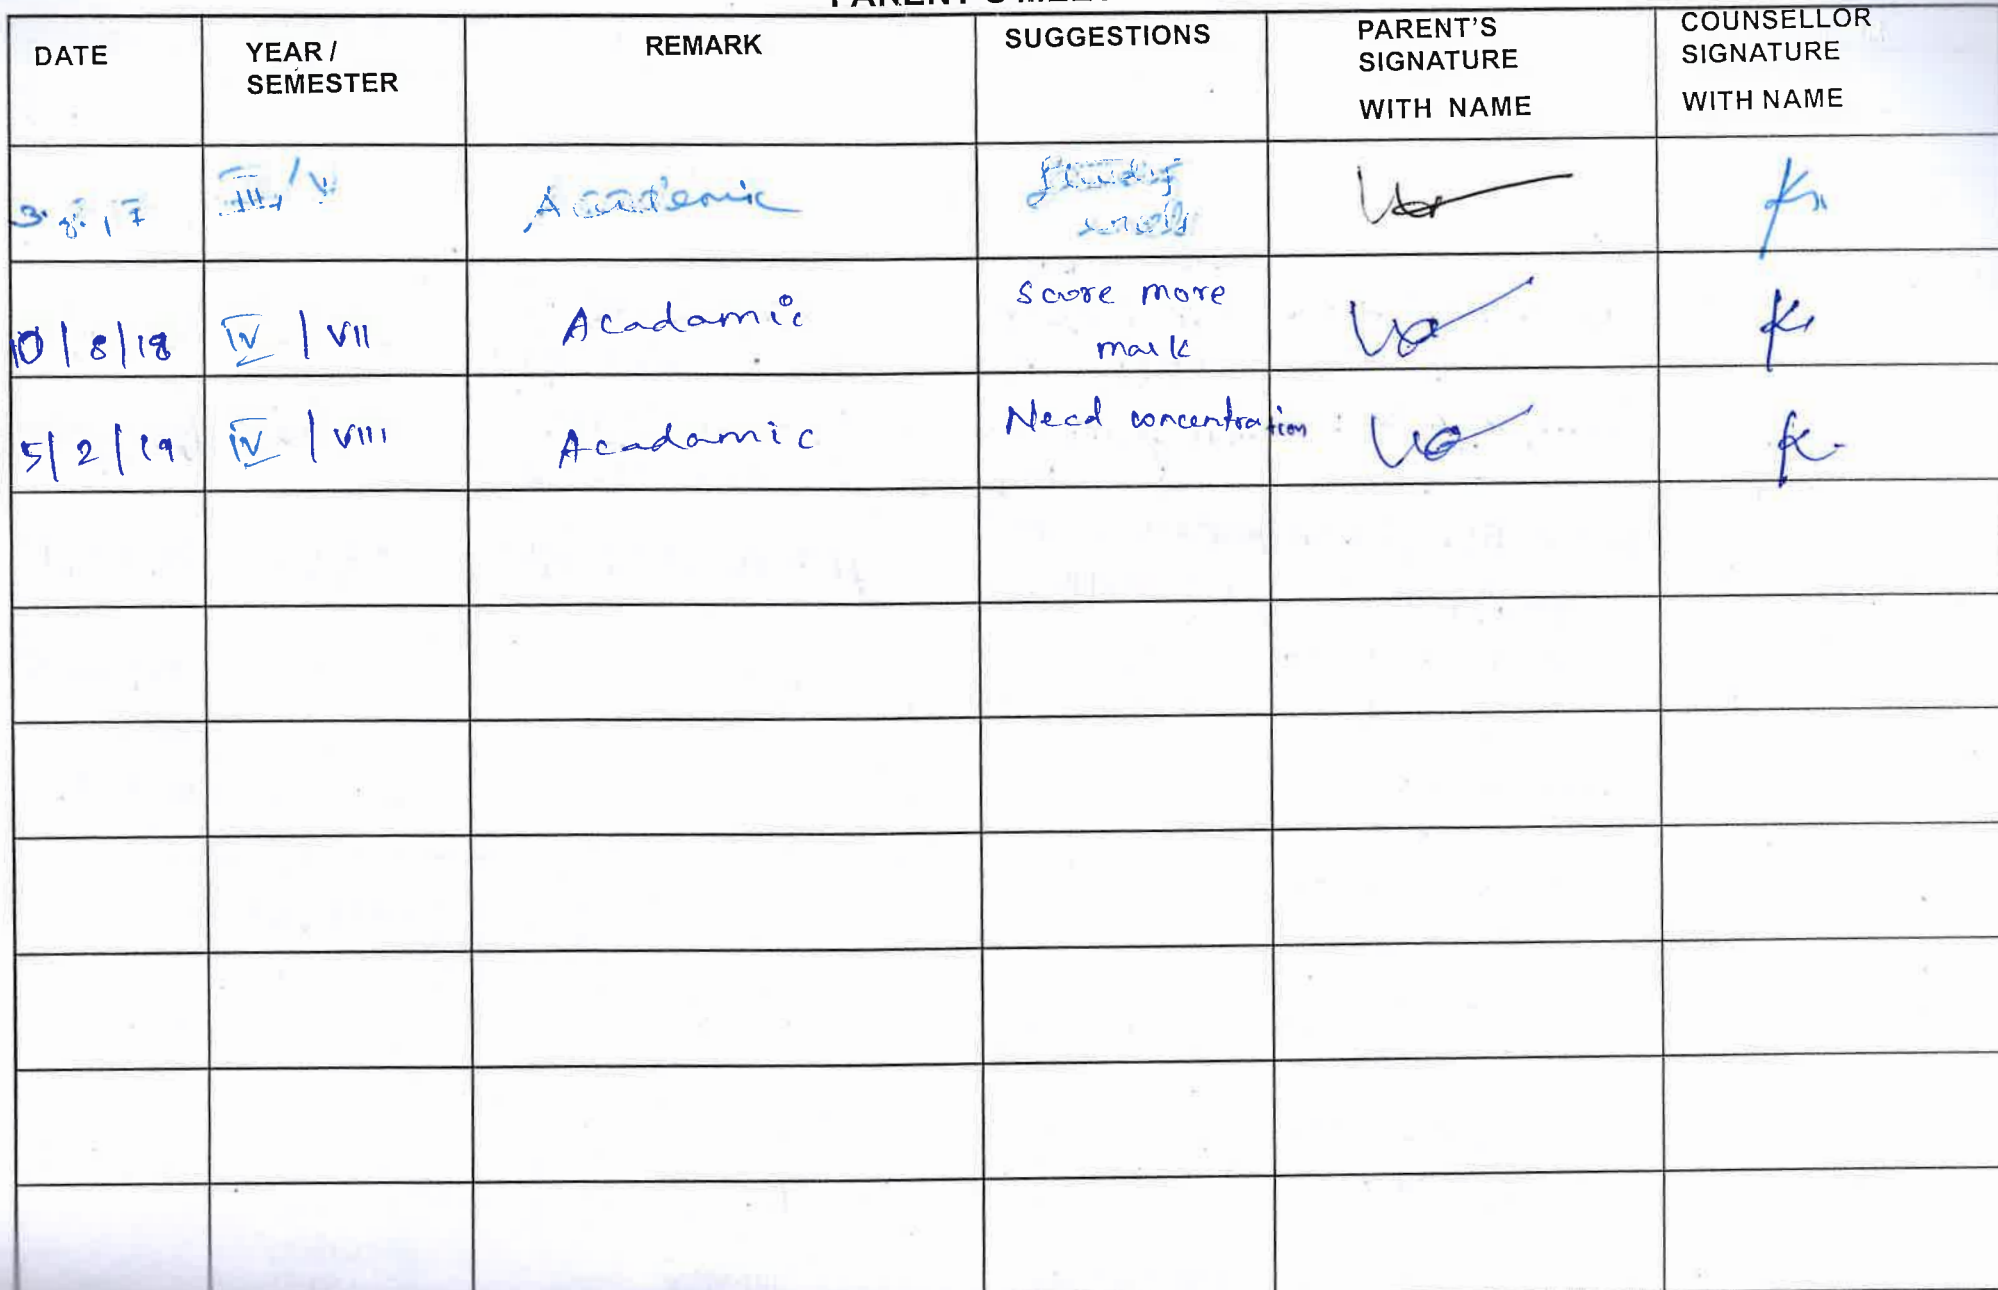 PARENT'S MEE
DATE
YEAR /
SEMESTER
REMARK
SUGGESTIONS
PARENT'S
SIGNATURE
WITH NAME
COUNSELLOR
SIGNATURE
WITH NAME
3.8.17
III / V
Academic
10/8/18
IV / VII
Acadamic
Score more
mark
5/2/19
IV / VIII
Acadamic
Need concentration